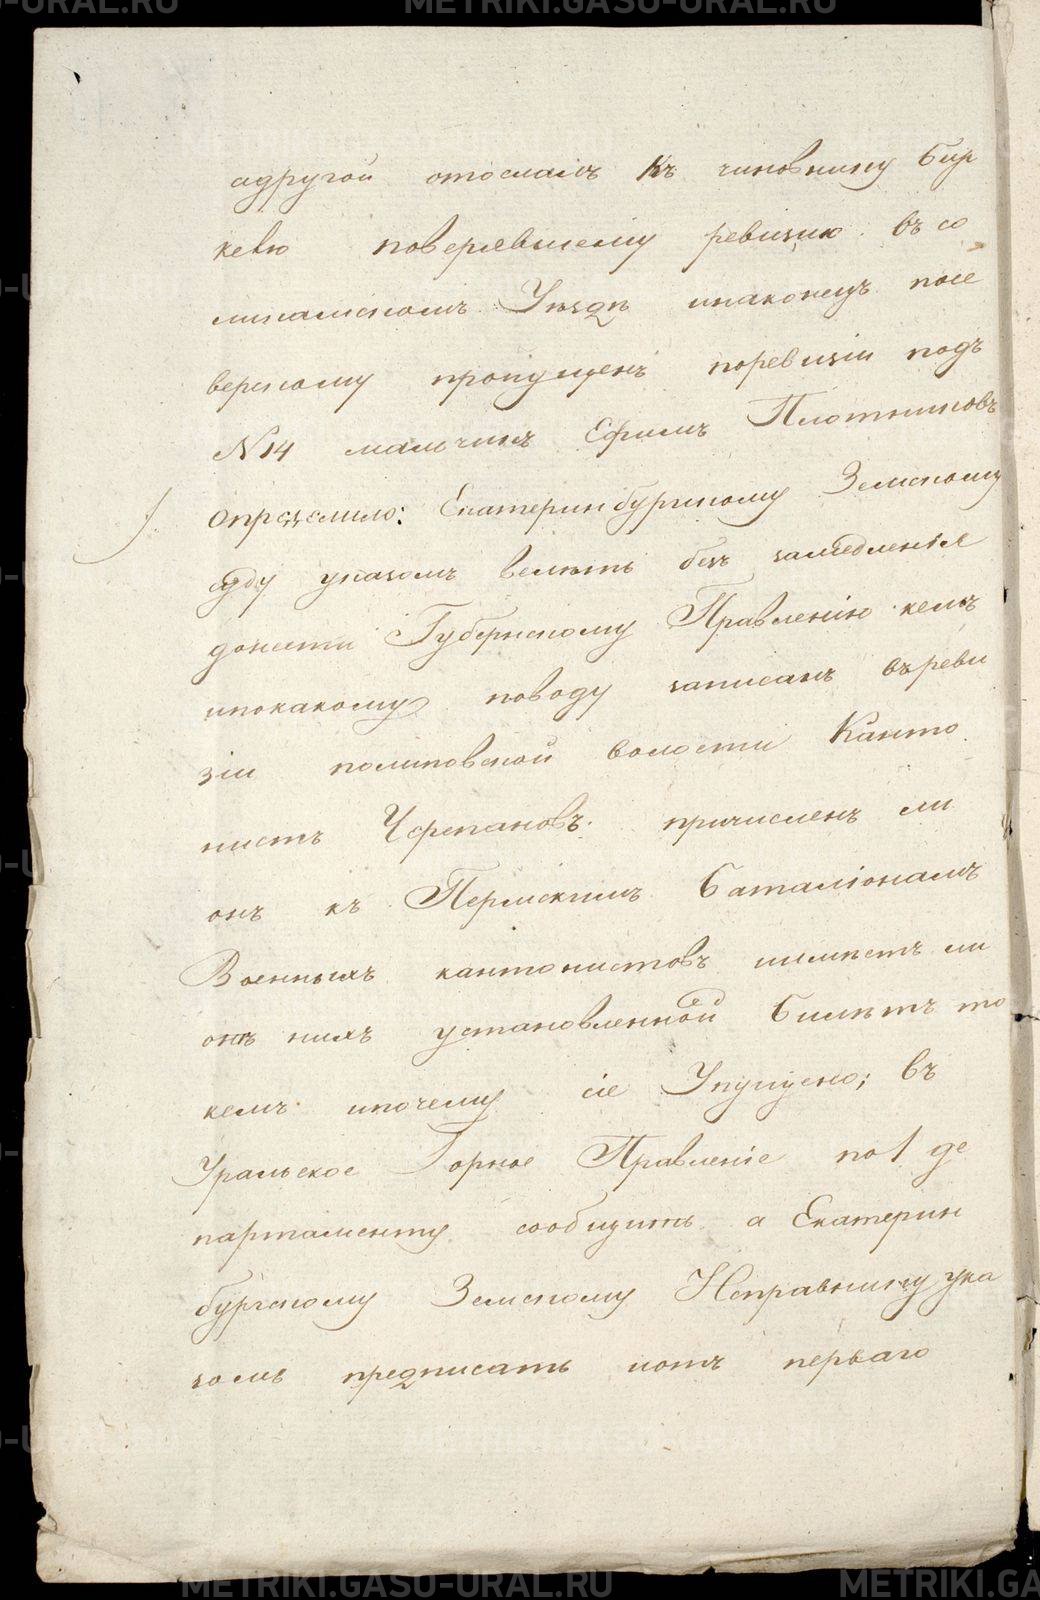 METRIKI.GASU-URAL.RU
адругой отосланъ къ чиновнику Бир
кевю поверявшему ревизию въ со
ликамскомъ Уѣздѣ инаконецъ посе
верному пропущенъ поревизіи подъ
N 14 мальчикъ Ефимъ Плотниковъ
опредѣлило: Екатеринбургскому Земскому
суду указомъ велѣть безъ замедленія
донести Губернскому Правленію кемъ
ипокакому поводу записанъ въреви
зіи волости Канто
нистъ Черепановъ. причисленъ ли
онъ къ Пермскимъ баталіонамъ
Военныхъ кантонистовъ иимѣетъ ли
онъ нихъ установленной билѣтъ то
кемъ ипочему сіе Упущено; въ
Уральское Горное Правленіе по 1 де
партаменту сообщить а Екатерин
бургскому Земскому Исправнику ука
зомъ предписать чтобъ перваго